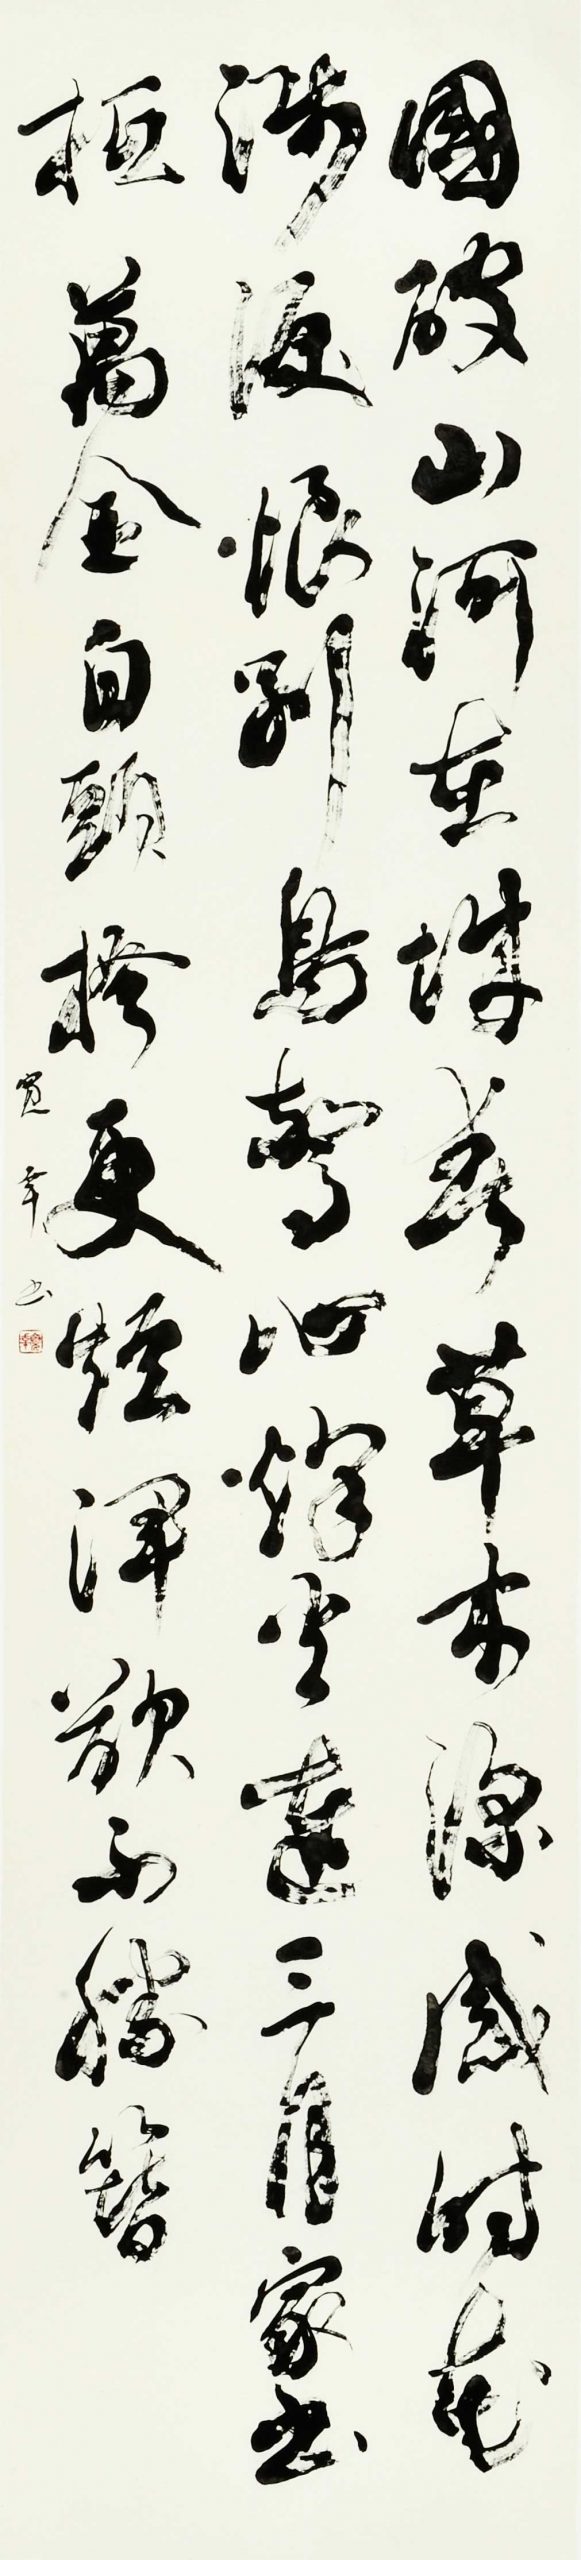 國破山河在城春草木深感時花
濺淚恨別鳥驚心烽火連三月家書
抵萬金白頭搔更短渾欲不勝簪
寬幸書